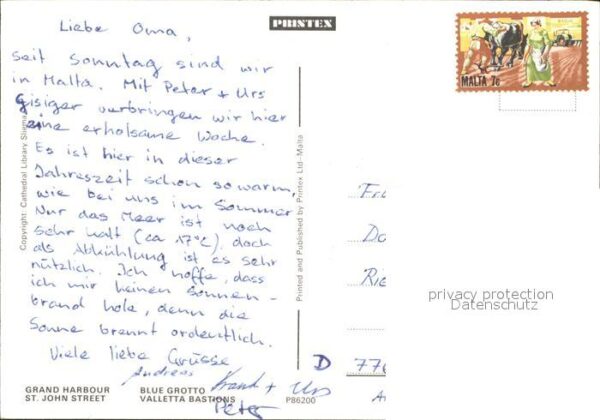 PRINTEX
Liebe Oma,
seit Sonntag sind wir
in Malta. Mit Peter + Urs
Gisiger verbringen wir hier
eine erholsame Woche.
Es ist hier in dieser
Jahreszeit schon so warm,
wie bei uns im Sommer
Nur das Meer ist noch
sehr kalt (ca 17°C), doch
als Abkühlung ist es sehr
nützlich. Ich hoffe, dass
ich mir keinen Sonnen-
brand hole, denn die
Sonne brennt ordentlich.
Viele liebe Grüsse
Andreas
Frank + Urs
Peter
GRAND HARBOUR
ST. JOHN STREET
BLUE GROTTO
VALLETTA BASTIONS
P86200
Copyright: Cathedral Library Sliema
Printed and Published by Printex Ltd-Malta
MALTA 7c
Fr
Do
Rie
D 776
privacy protection
Datenschutz